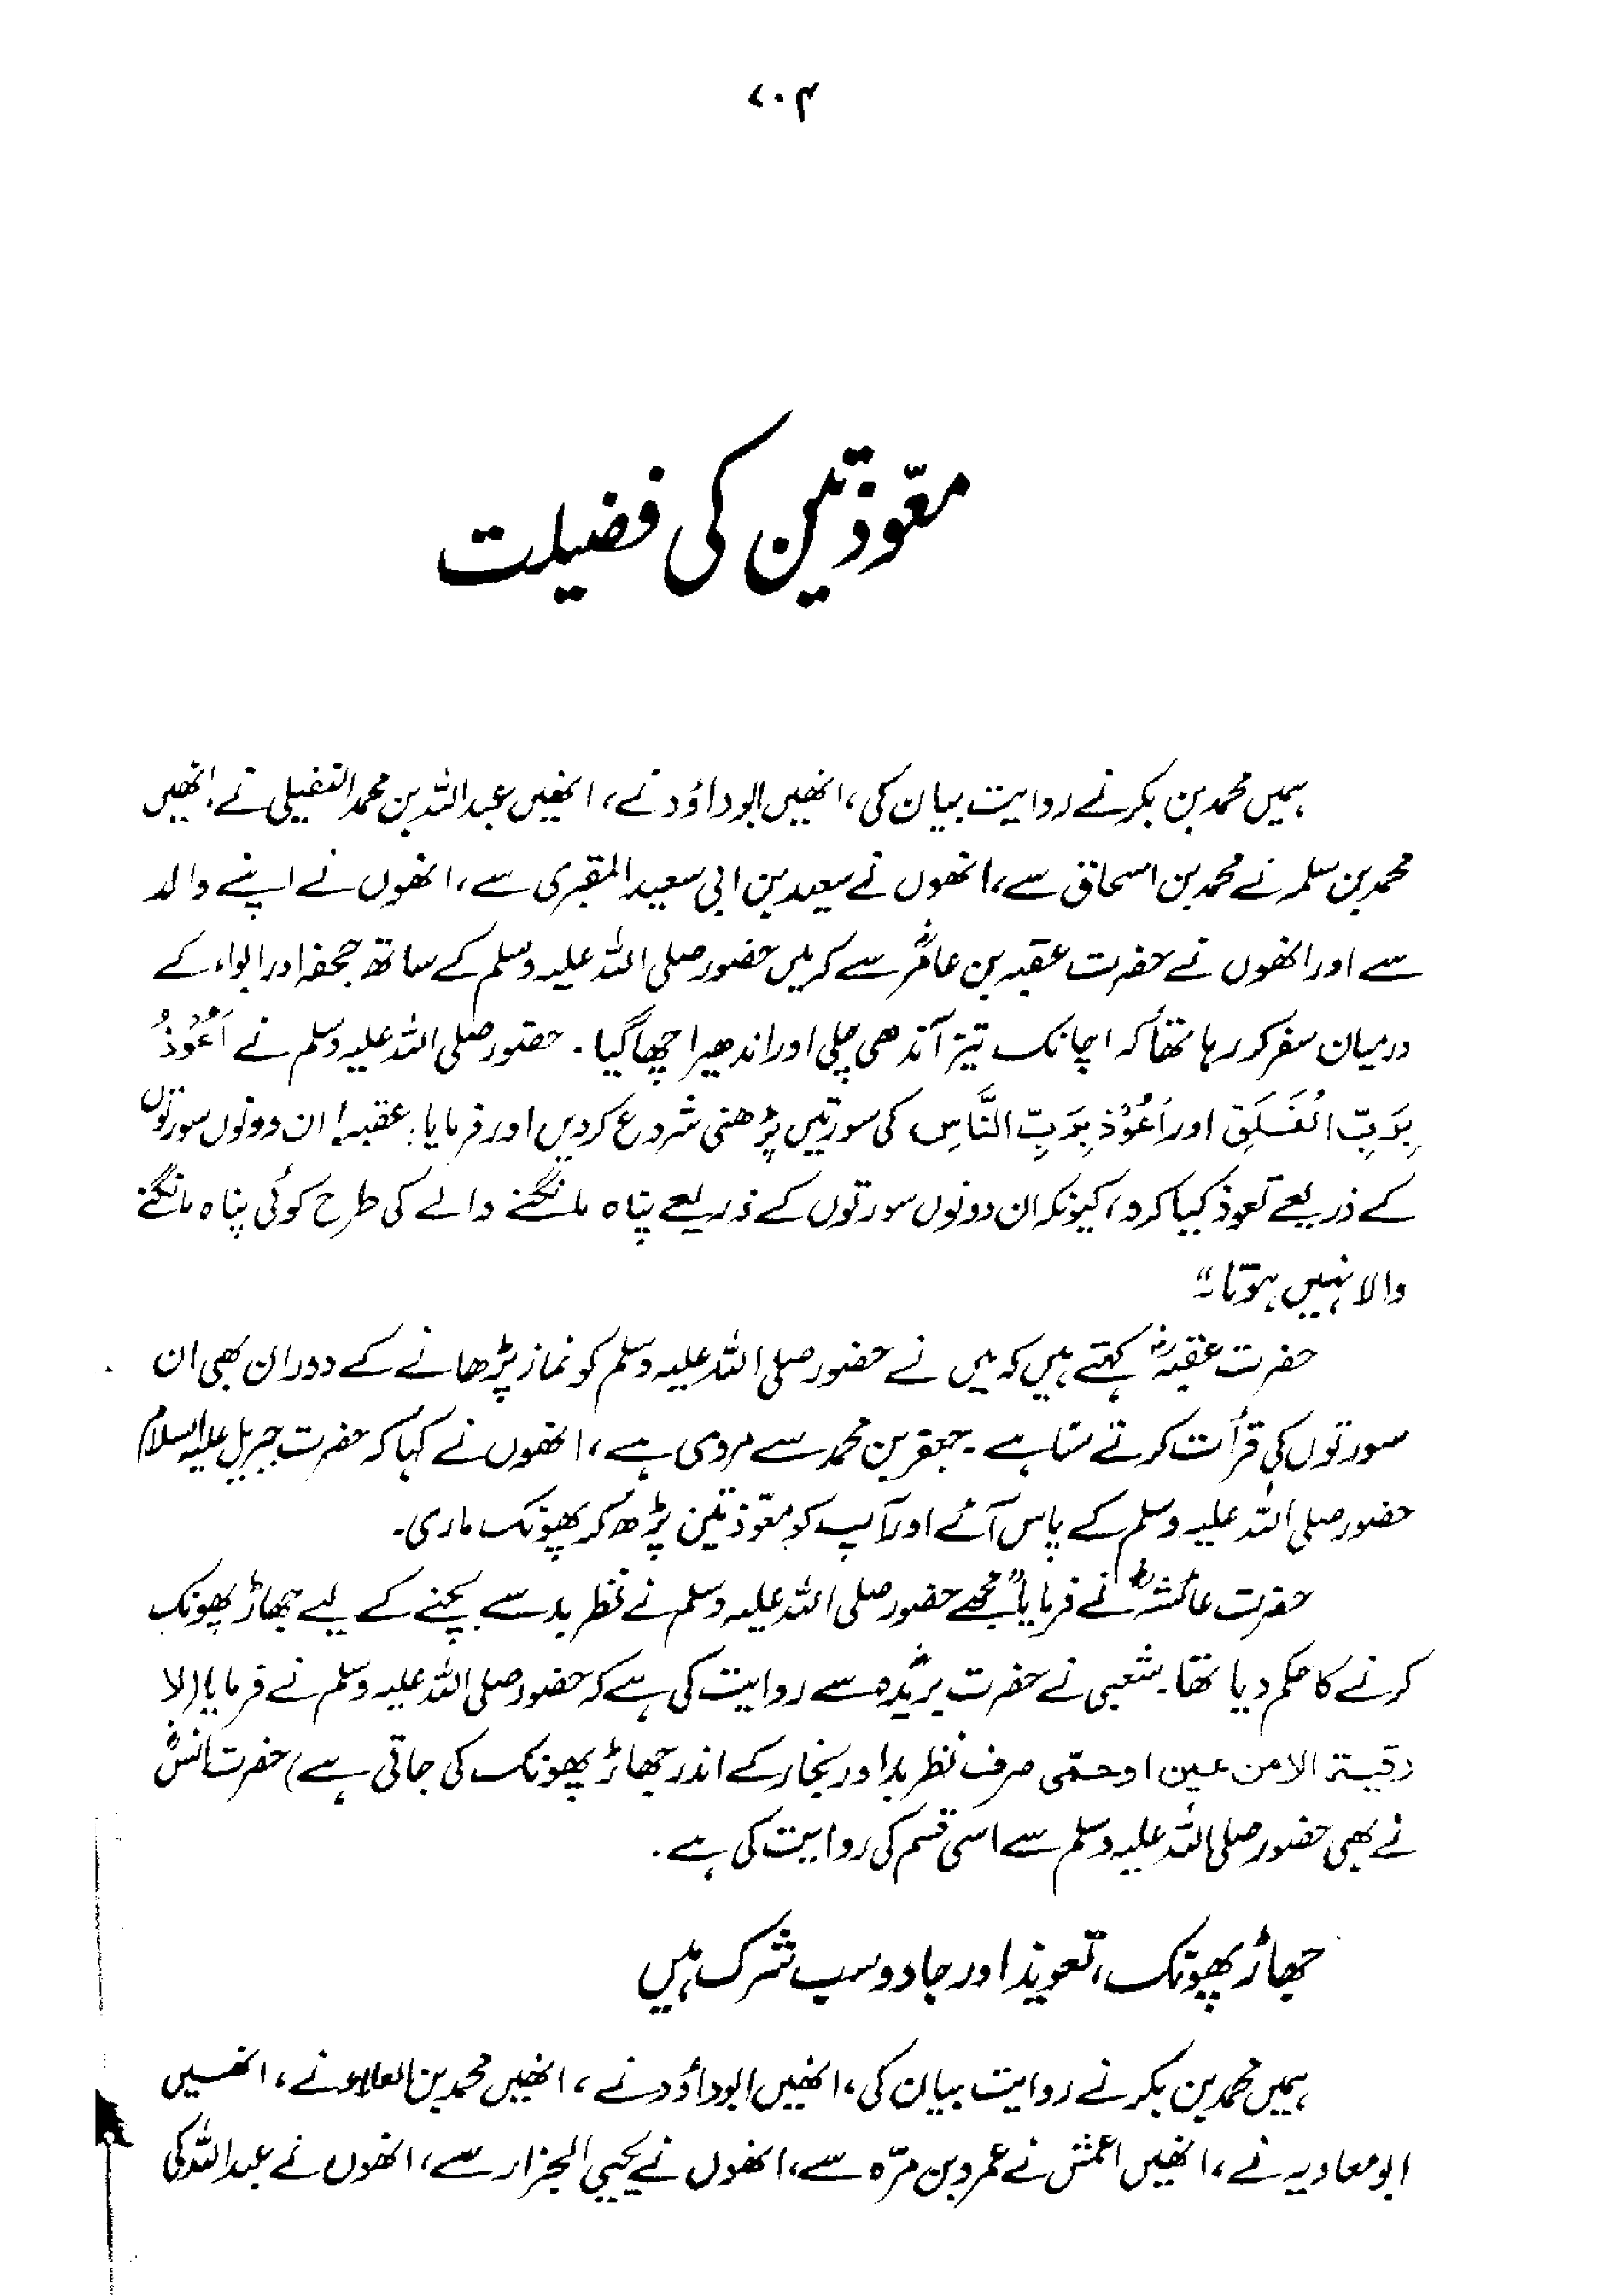 ۷۰۴
معوّذتین کی فضیلت
ہمیں محمد بن بکر نے روایت بیان کی، انھیں ابوداؤد نے، انھیں عبداللہ بن محمد النفیلی نے، انھیں
محمد بن سلمہ نے محمد بن اسحاق سے، انھوں نے سعید بن ابی سعید المقبری سے، انھوں نے اپنے والد
سے اور انھوں نے حضرت عقبہ بن عامرؓ سے کہ میں حضور صلی اللہ علیہ وسلم کے ساتھ جحفہ اور ابواء کے
درمیان سفر کر رہا تھا کہ اچانک تیز آندھی چلی اور اندھیرا چھا گیا۔ حضور صلی اللہ علیہ وسلم نے اَعُوْذُ
بِرَبِّ الْفَلَقِ اور اَعُوْذُ بِرَبِّ النَّاسِ کی سورتیں پڑھنی شروع کر دیں اور فرمایا: عقبہ! ان دونوں سورتوں
کے ذریعے تعوذ کیا کرو، کیونکہ ان دونوں سورتوں کے ذریعے پناہ مانگنے والے کی طرح کوئی پناہ مانگنے
والا نہیں ہوتا۔“
حضرت عقبہؓ کہتے ہیں کہ میں نے حضور صلی اللہ علیہ وسلم کو نماز پڑھانے کے دوران بھی ان
سورتوں کی قرأت کرتے سنا ہے۔ جعفر بن محمد سے مروی ہے، انھوں نے کہا کہ حضرت جبریل علیہ السلام
حضور صلی اللہ علیہ وسلم کے پاس آئے اور آپ کو معوّذتین پڑھ کر پھونک ماری۔
حضرت عائشہؓ نے فرمایا ”مجھے حضور صلی اللہ علیہ وسلم نے نظر بد سے بچنے کے لیے جھاڑ پھونک
کرنے کا حکم دیا تھا۔ شعبی نے حضرت بریدہؓ سے روایت کی ہے کہ حضور صلی اللہ علیہ وسلم نے فرمایا (لا
رقیۃ الا من عین او حمّی صرف نظر بد اور بخار کے اندر جھاڑ پھونک کی جاتی ہے) حضرت انسؓ
نے بھی حضور صلی اللہ علیہ وسلم سے اسی قسم کی روایت کی ہے۔
جھاڑ پھونک، تعویذ اور جادو سب شرک ہیں
ہمیں محمد بن بکر نے روایت بیان کی، انھیں ابوداؤد نے، انھیں محمد بن العلاء نے، انھیں
ابو معاویہ نے، انھیں اعمش نے عمرو بن مرّہ سے، انھوں نے یحییٰ الجزار سے، انھوں نے عبداللہ کی